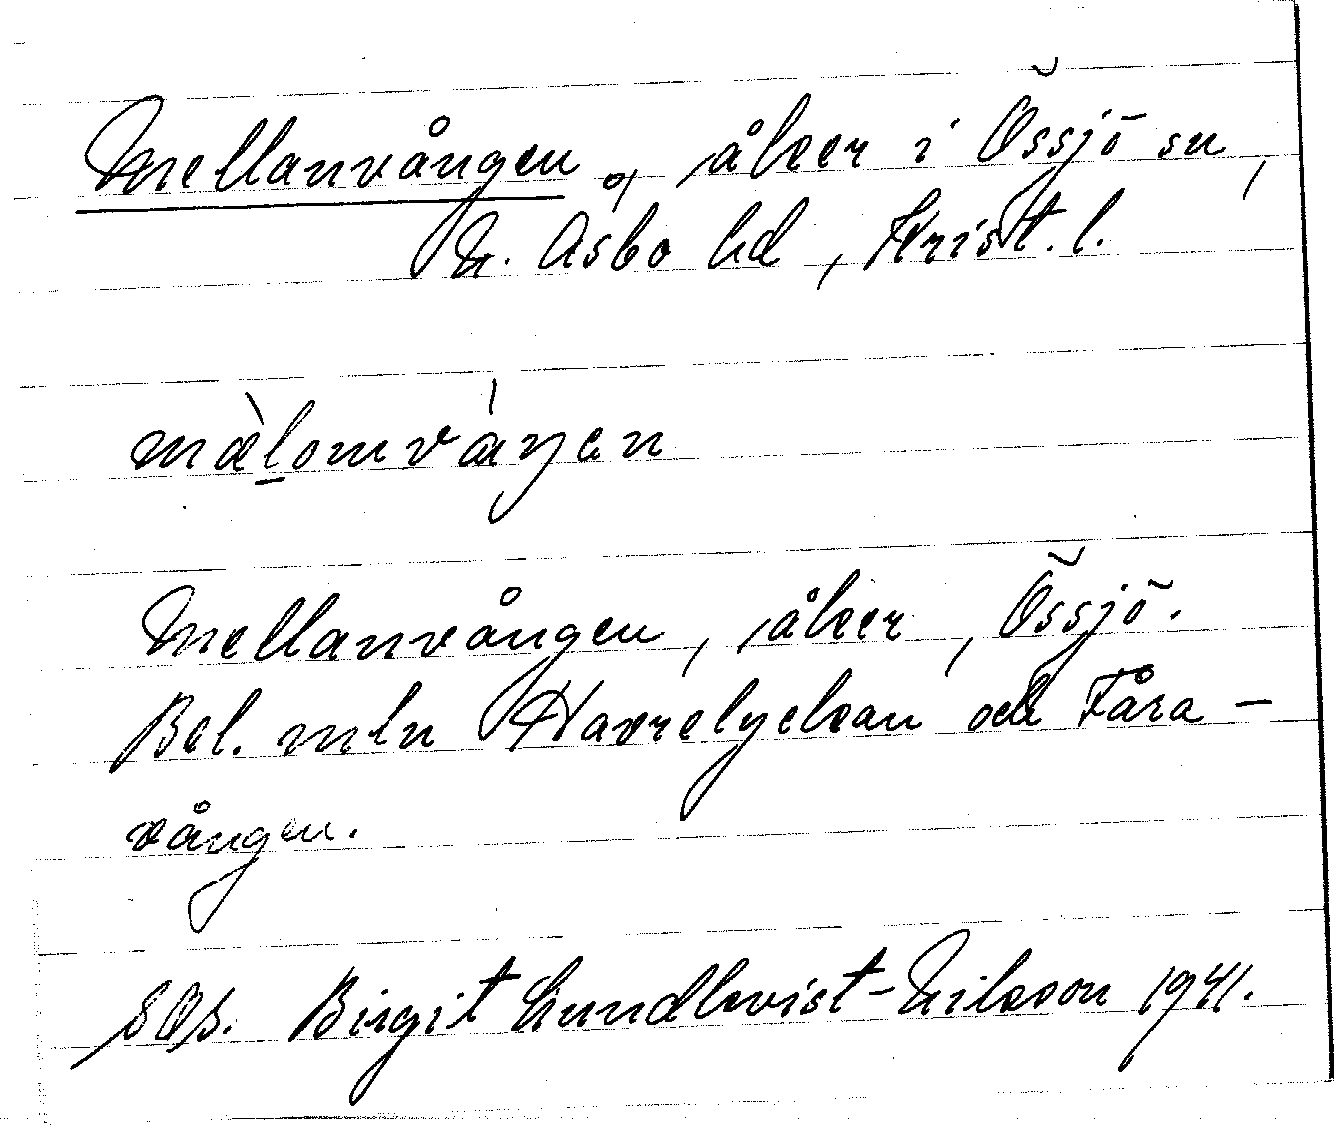 Mellanvången, åker i Össjö sn,
N. Åsbo hd, Krist. l.
mæ̀lomváŋen
Mellanvången, åker, Össjö.
Bel. mln Havrelyckan och Fåra-
vången.
SOS. Birgit Lundkvist-Nilsson 1941.